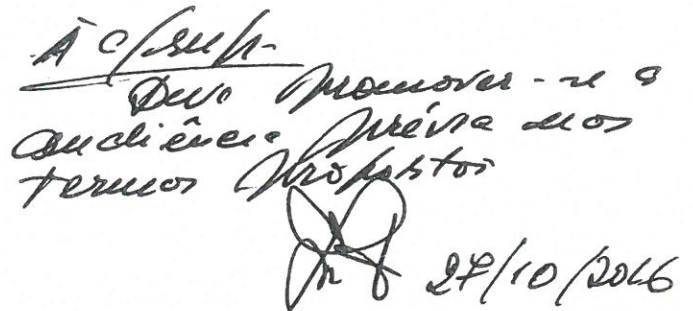 À
Deve promover-se a
audiência prévia nos
termos propostos
27/10/2016